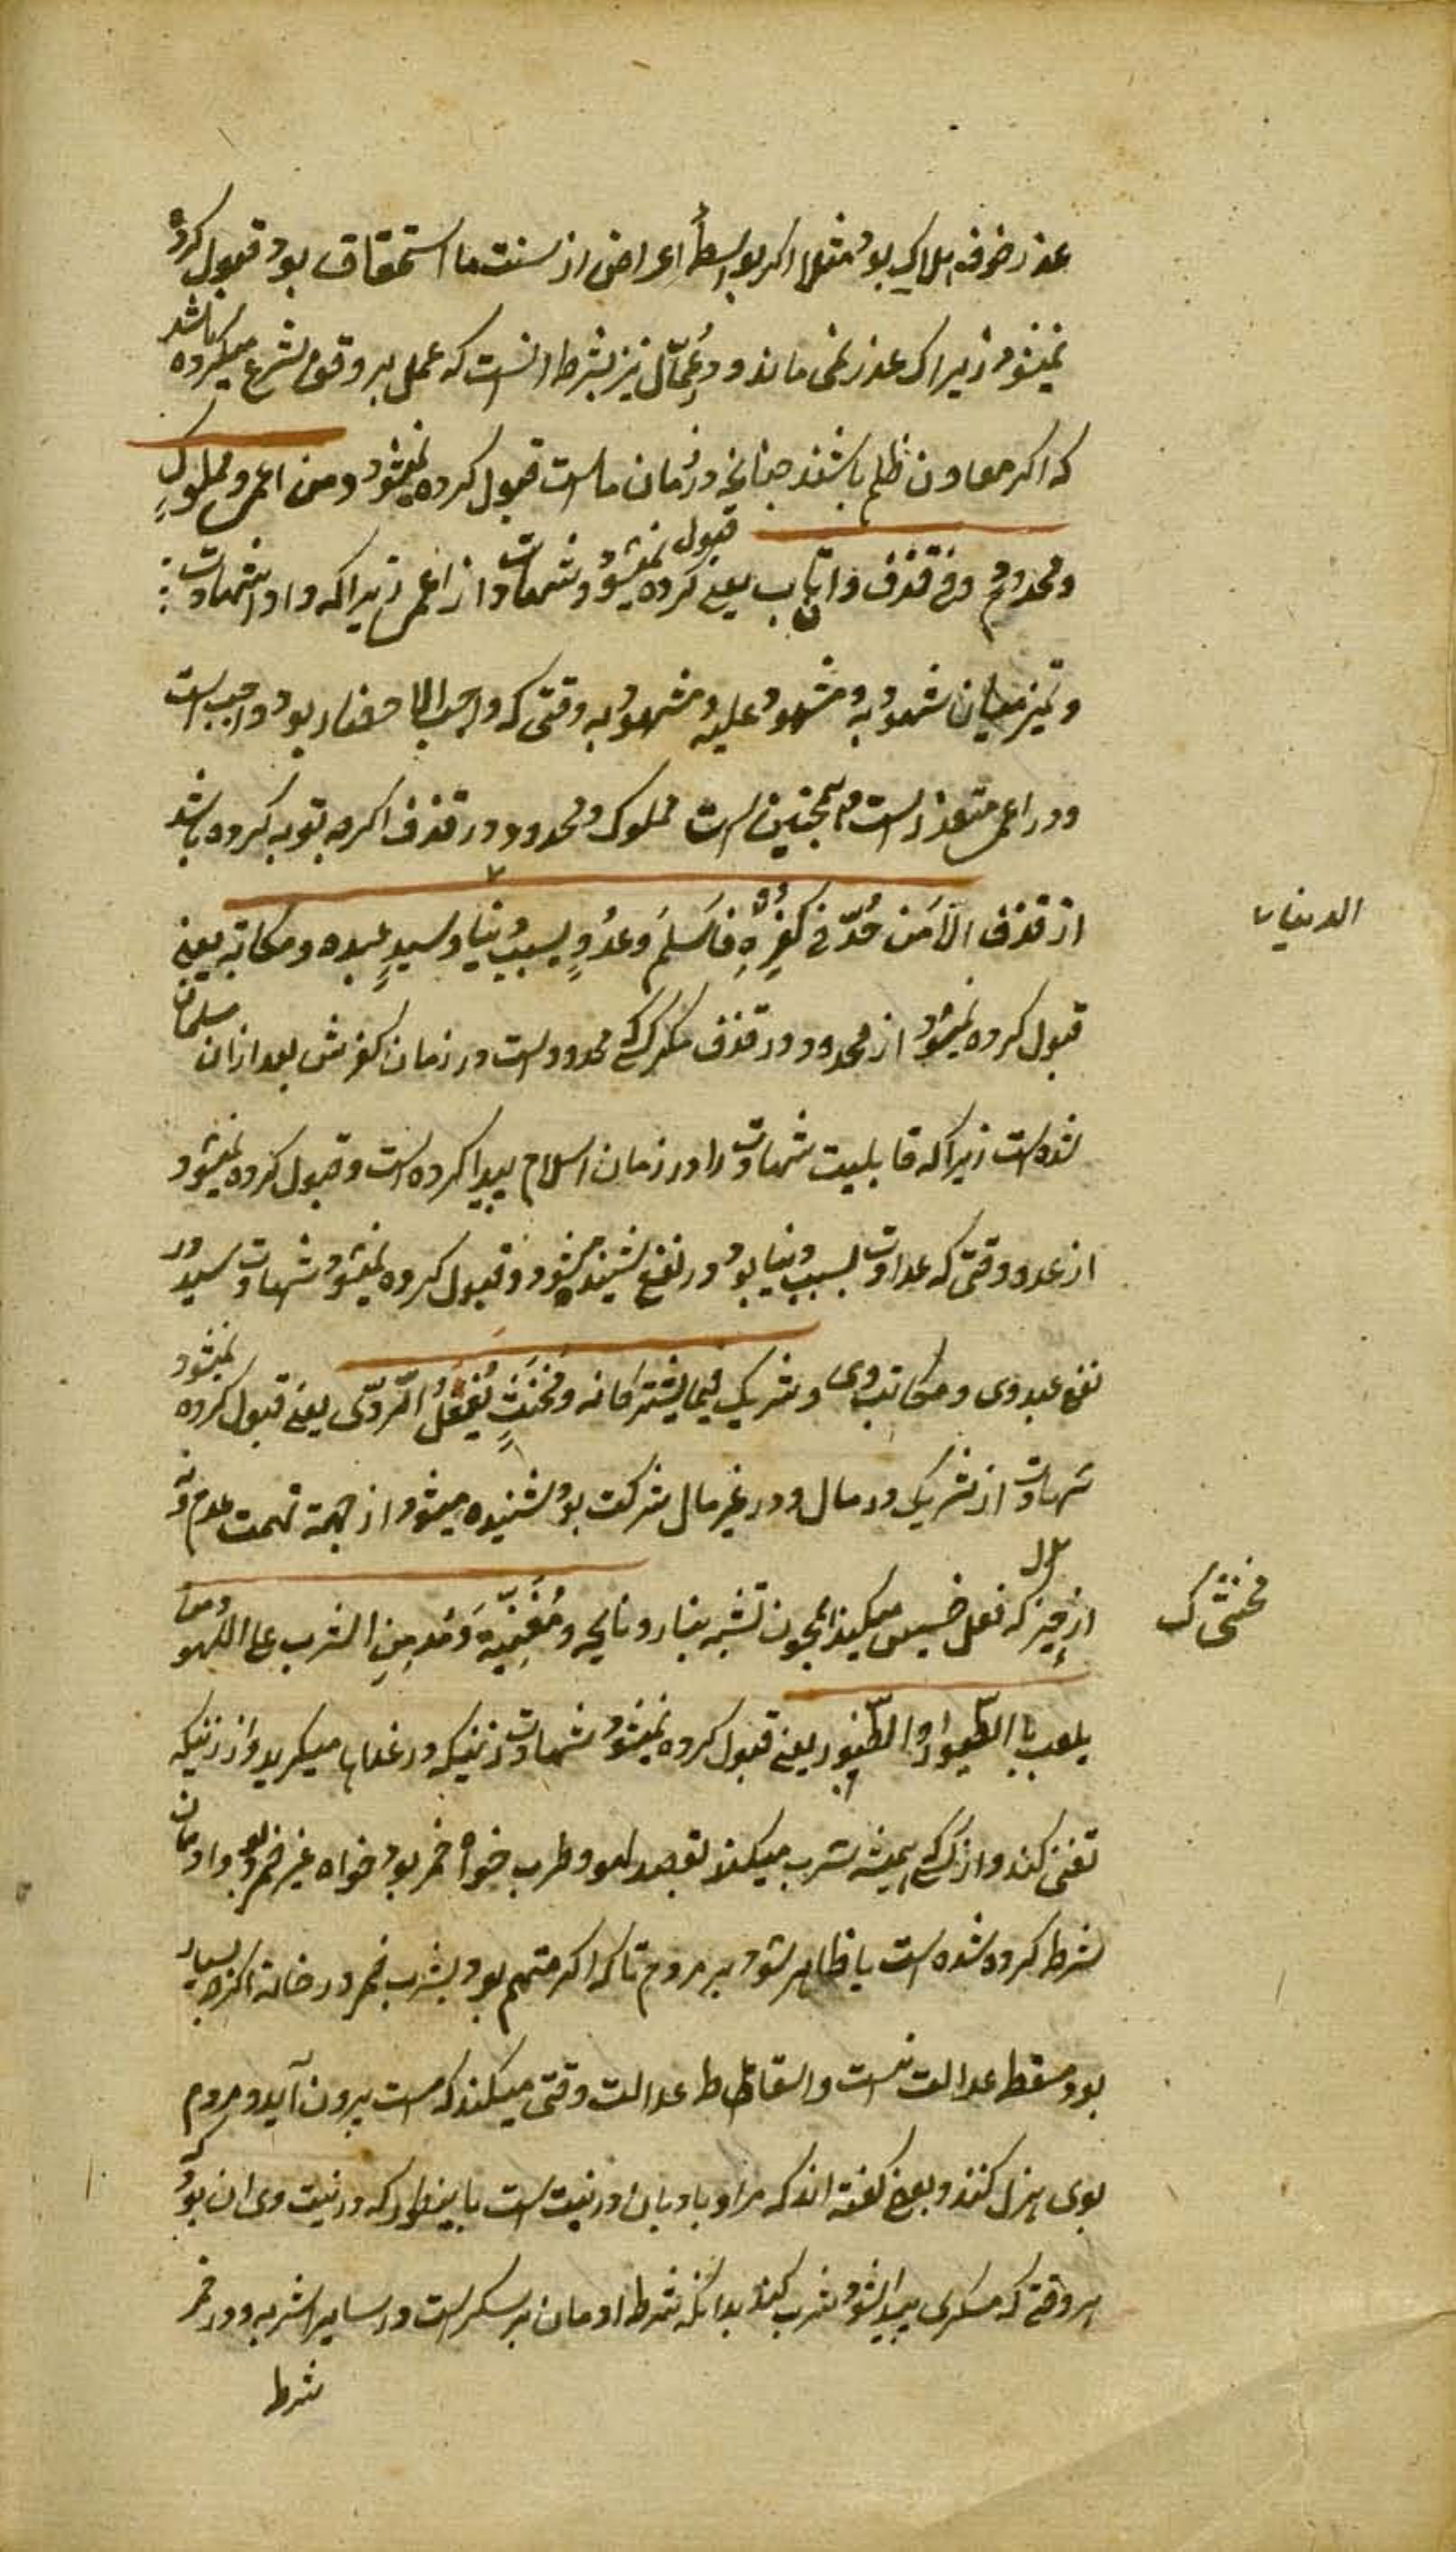 عذر خوف هلاک بود مثلا اکر بواسطهٔ اعراض از سنت ما استحقاق بود قبول کرده
نمیشود زیراک عذر نمی ماند و وعُمّال نیز بشرط انست که عمل بر وفق شرع میکرده باشد
که اکر معاون ظلم باشند چنانچه در زمان ماست قبول کرده نمیشود ومن اعمی ومملوکٍ
ومحدودٍ فی قذف وان تاب یعنی قبول کرده نمیشود شهادت از اعمی زیراکه واو شهادت
و تمیز میان مشهود به و مشهود علیه و مشهود به وقتی که واجب الاحضار بود واجب است
و در اعمی متعذر است و همچنین است مملوک و محدود در قذف اکرچه توبه کرده باشد
از قذف الا مَن حُدّ فی کفرِهِ فاَسلَمَ وعدُوٍ بسبب دنیا وسیدٍ عبده و مکاتبه یعنی
الدنیا
قبول کرده نمیشود از محدود در قذف مکر کسی که محدود است در زمان کفرش بعد ازان مسلمان
شده است زیراکه قابلیت شهادت را در زمان اسلام پیدا کرده است و قبول کرده نمیشود
از عدو وقتی که عداوت بسبب دنیا بود و در نفع شنیده میشود و قبول کرده نمیشود شهادت سید در
نفع عبد وی و مکاتب وی و شریکٍ فیما یشترکانه ومُخنّثٍ یَفعلُ الرّدّی یعنی قبول کرده نمیشود
شهادت از شریک در مال و در غیر مال شرکت بود شنیده میشود از جهة تهمت عدم ونه
از حیز که فعل خسیس میکند همچون تشبه بنساء و نایحه ومُغَنّیَةٍ ومُدمِنِ الشرب علی اللهو ومن
مخنثی ک
یلعب بالطیور او الطنبور یعنی قبول کرده نمیشود شهادت زنیکه در غمها میکرید و از زنیکه
تغنی کند و از کسی که همیشه شرب میکند بقصد لهو و طرب خواه خمر بود خواه غیر خمر بود و ادمان
شرط کرده شده است یا ظاهر شود بر مردم تا که اکر متهم بود بشرب خمر در خانه اکرچه بسیار
بود مسقط عدالت نیست و اسقاط عدالت وقتی میکند که مست بیرون آید و مردم
بوی هزل کنند و بعضی کفته اند که مراد بادمان در نیت است باینطور که در نیت وی ان بود که
هر وقتی که مسکری پیدا شود شرب کند بدانکه شرط ادمان بر سکر است در سایر اشربه و در خمر
شرط